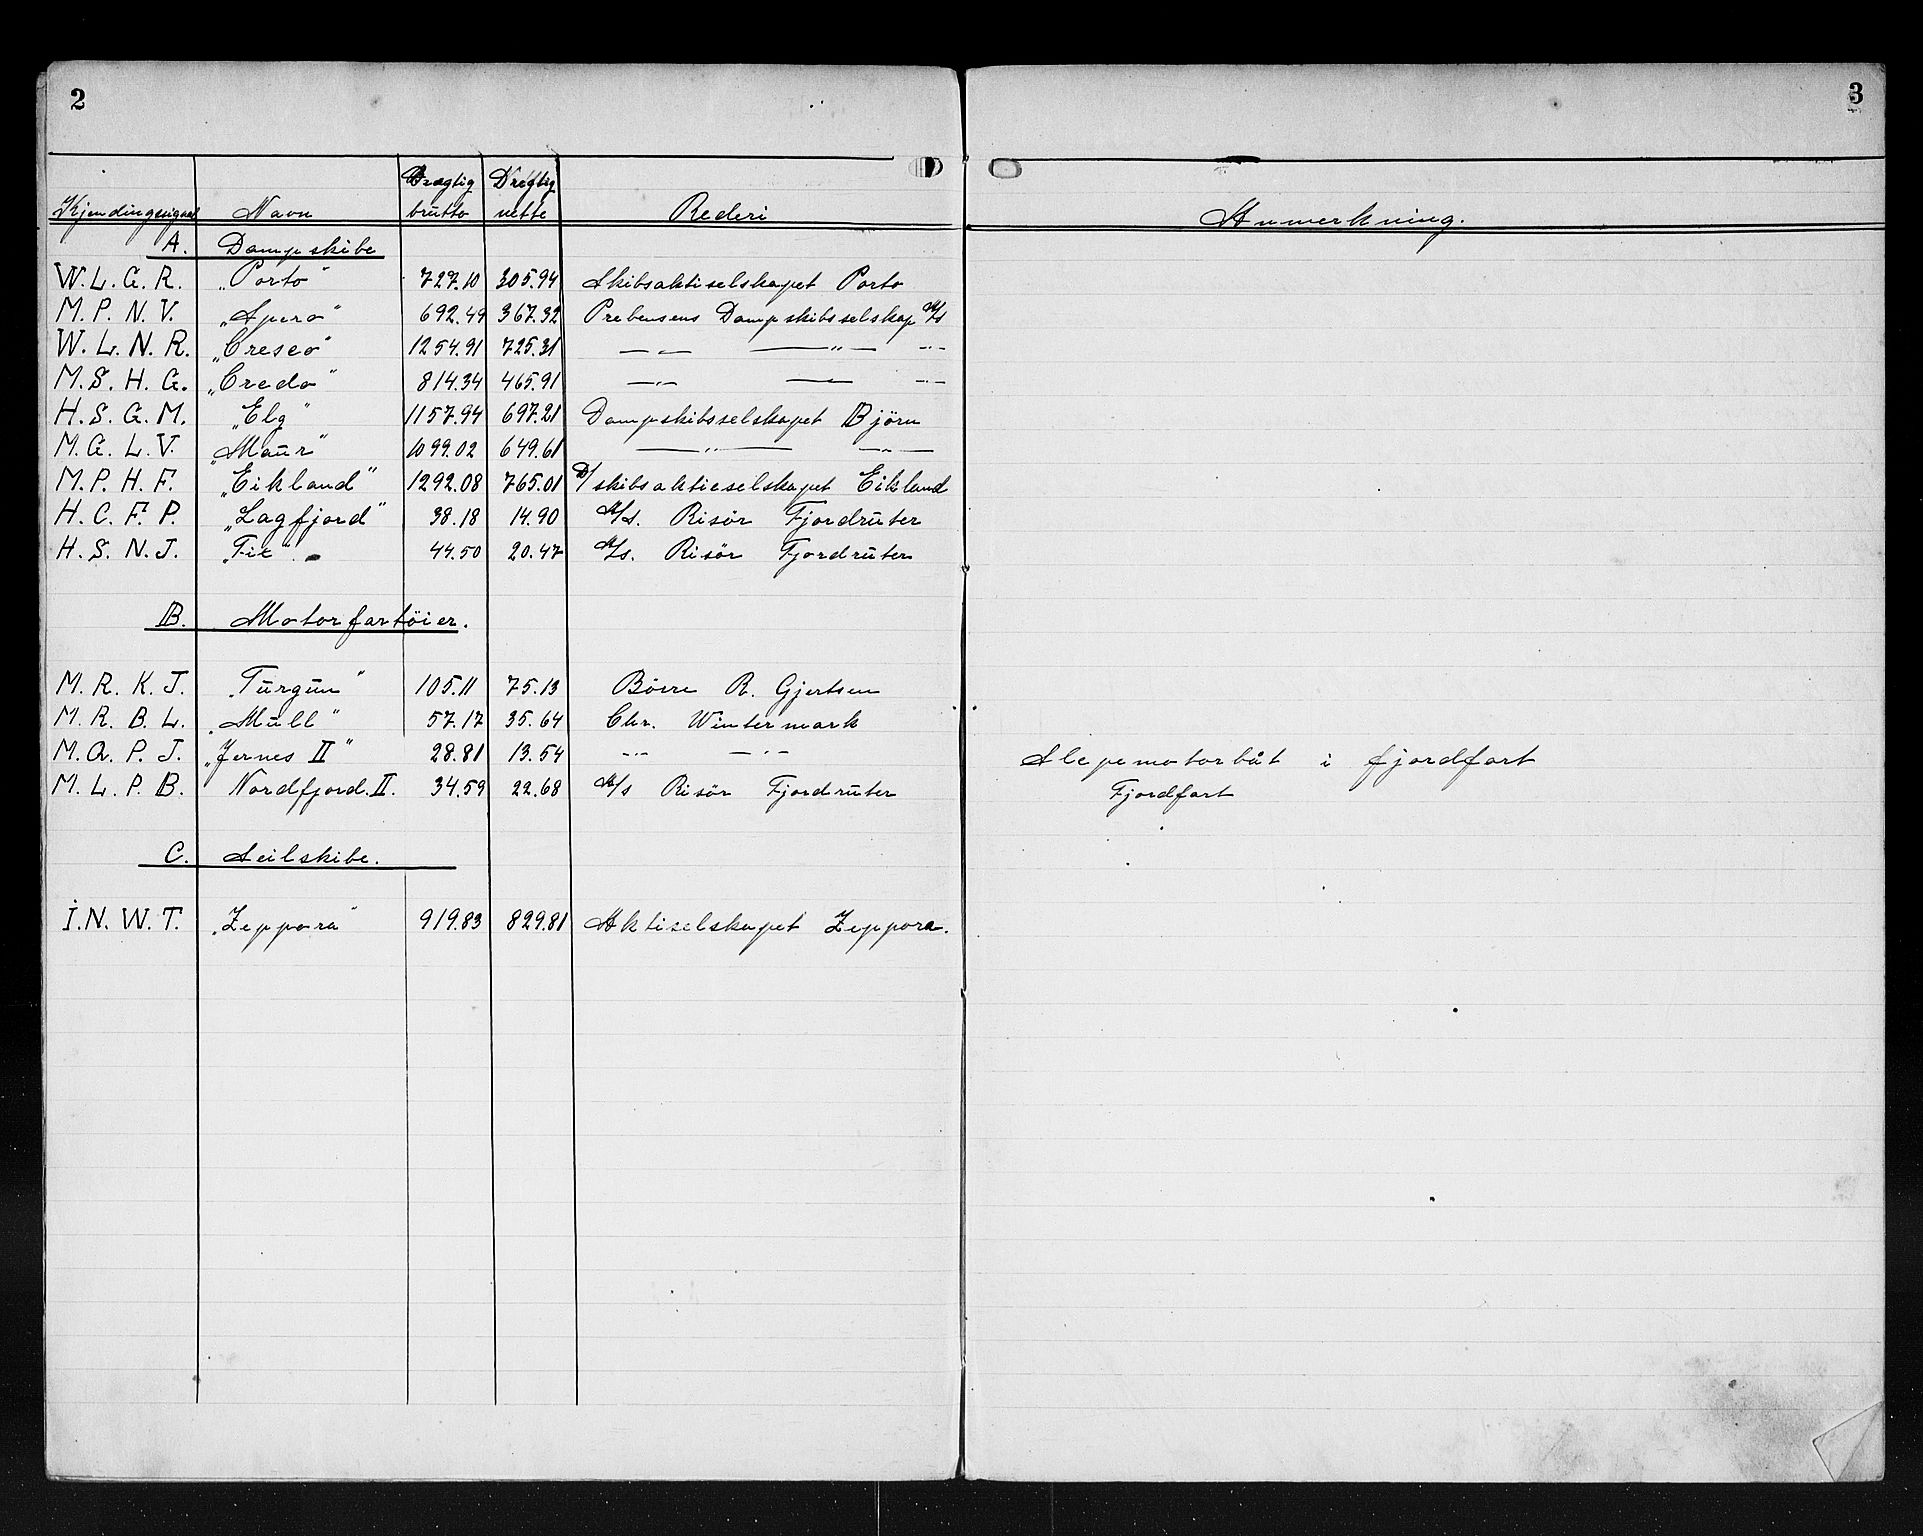 2
3
Drægtig Drægtig
Kjendingssignal Navn brutto netto Rederi Anmerkning.
A. Dampskibe
W. L. G. R. „Porto" 727.10 305.94 Skibsaktiselskapet Porto
M. P. N. V. „Spero" 692.49 367.32 Prebensens Dampskibsselskap A/s
W. L. N. R. „Cresco" 1254.91 725.31 —„— —„— -„-
M. S. H. G. „Credo" 814.34 465.91 —„— —„— -„-
H. S. G. M. „Elg" 1157.94 697.21 Dampskibsselskapet Björn
M. G. L. V. „Maur" 1099.02 649.61 —„— -„-
M. P. H. F. „Eikland" 1292.08 765.01 D/skibsaktieselskapet Eikland
H. C. F. P. „Lagfjord" 38.18 14.90 A/S. Risör Fjordruter
H. S. N. J. „Fix" 44.50 20.47 A/s. Risör Fjordruter
B. Motorfartöier.
M. R. K. J. „Turgun" 105.11 75.13 Börre R. Gjertsen
M. R. B. L. „Mull" 57.17 35.64 Chr. Wintermark
M. Q. P. J. „Jernes II" 28.81 13.54 -„- -„- Slepemotorbåt i fjordfart
M. L. P. B. Nordfjord. II. 34.59 22.68 A/s Risör Fjordruter Fjordfart
C. Seilskibe.
I. N. W. T. „Zeppora" 919.83 829.81 Aktiselskapet Zeppora.